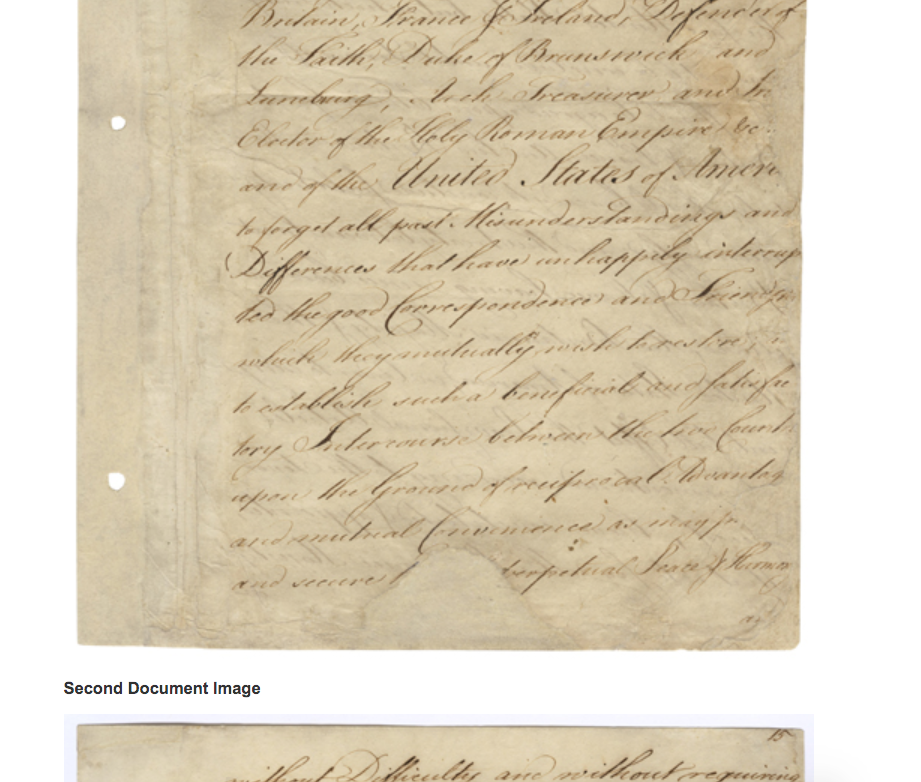 Britain, France & Ireland, Defender of
the Faith, Duke of Brunswick and
Luneburg, Arch Treasurer and Pr
Elector of the Holy Roman Empire &c.
and of the United States of Ameri
to forget all past Misunderstandings and
Differences that have unhappily interrup
ted the good Correspondence and Friendsh
which they mutually wish to restore;
to establish such a beneficial and satisfac
tory Intercourse between the two Countr
upon the Ground of reciprocal Advantag
and mutual Convenience as may pr
and secure perpetual Peace & Harmon
Second Document Image
15
without Difficulty and without requiring